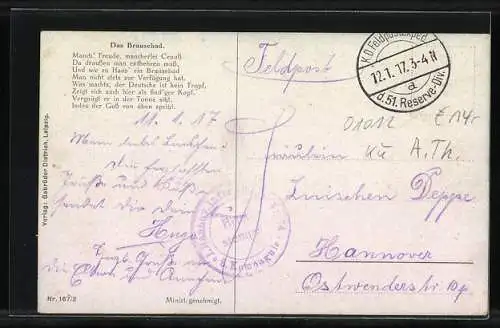 Das Brausebad.
Manch' Freude, mancherlei Genuß
Da draußen man entbehren muß,
Und wie zu Haus' ein Brausebad
Man nicht stets zur Verfügung hat.
Was machts, der Deutsche ist kein Tropf,
Zeigt sich auch hier als find'ger Kopf,
Vergnügt er in der Tonne sitzt,
Indes der Guß von oben spritzt.
11.1.17
Mein liebes
Die herzlichsten
Grüße und
sendet Dir Dein
Hugo
Grüße an
die Eltern und
Verlag: Gebrüder Dietrich, Leipzig.
Nr. 167/2
Minist. genehmigt.
Feldpost
K.D. Feldpostexped.
12.1.17. 3-4 N
a
d. 51. Reserve-Div.
01012
KÜ A.Th.
Fräulein
Linschen Deppe
Hannover
Ostwenderstr.